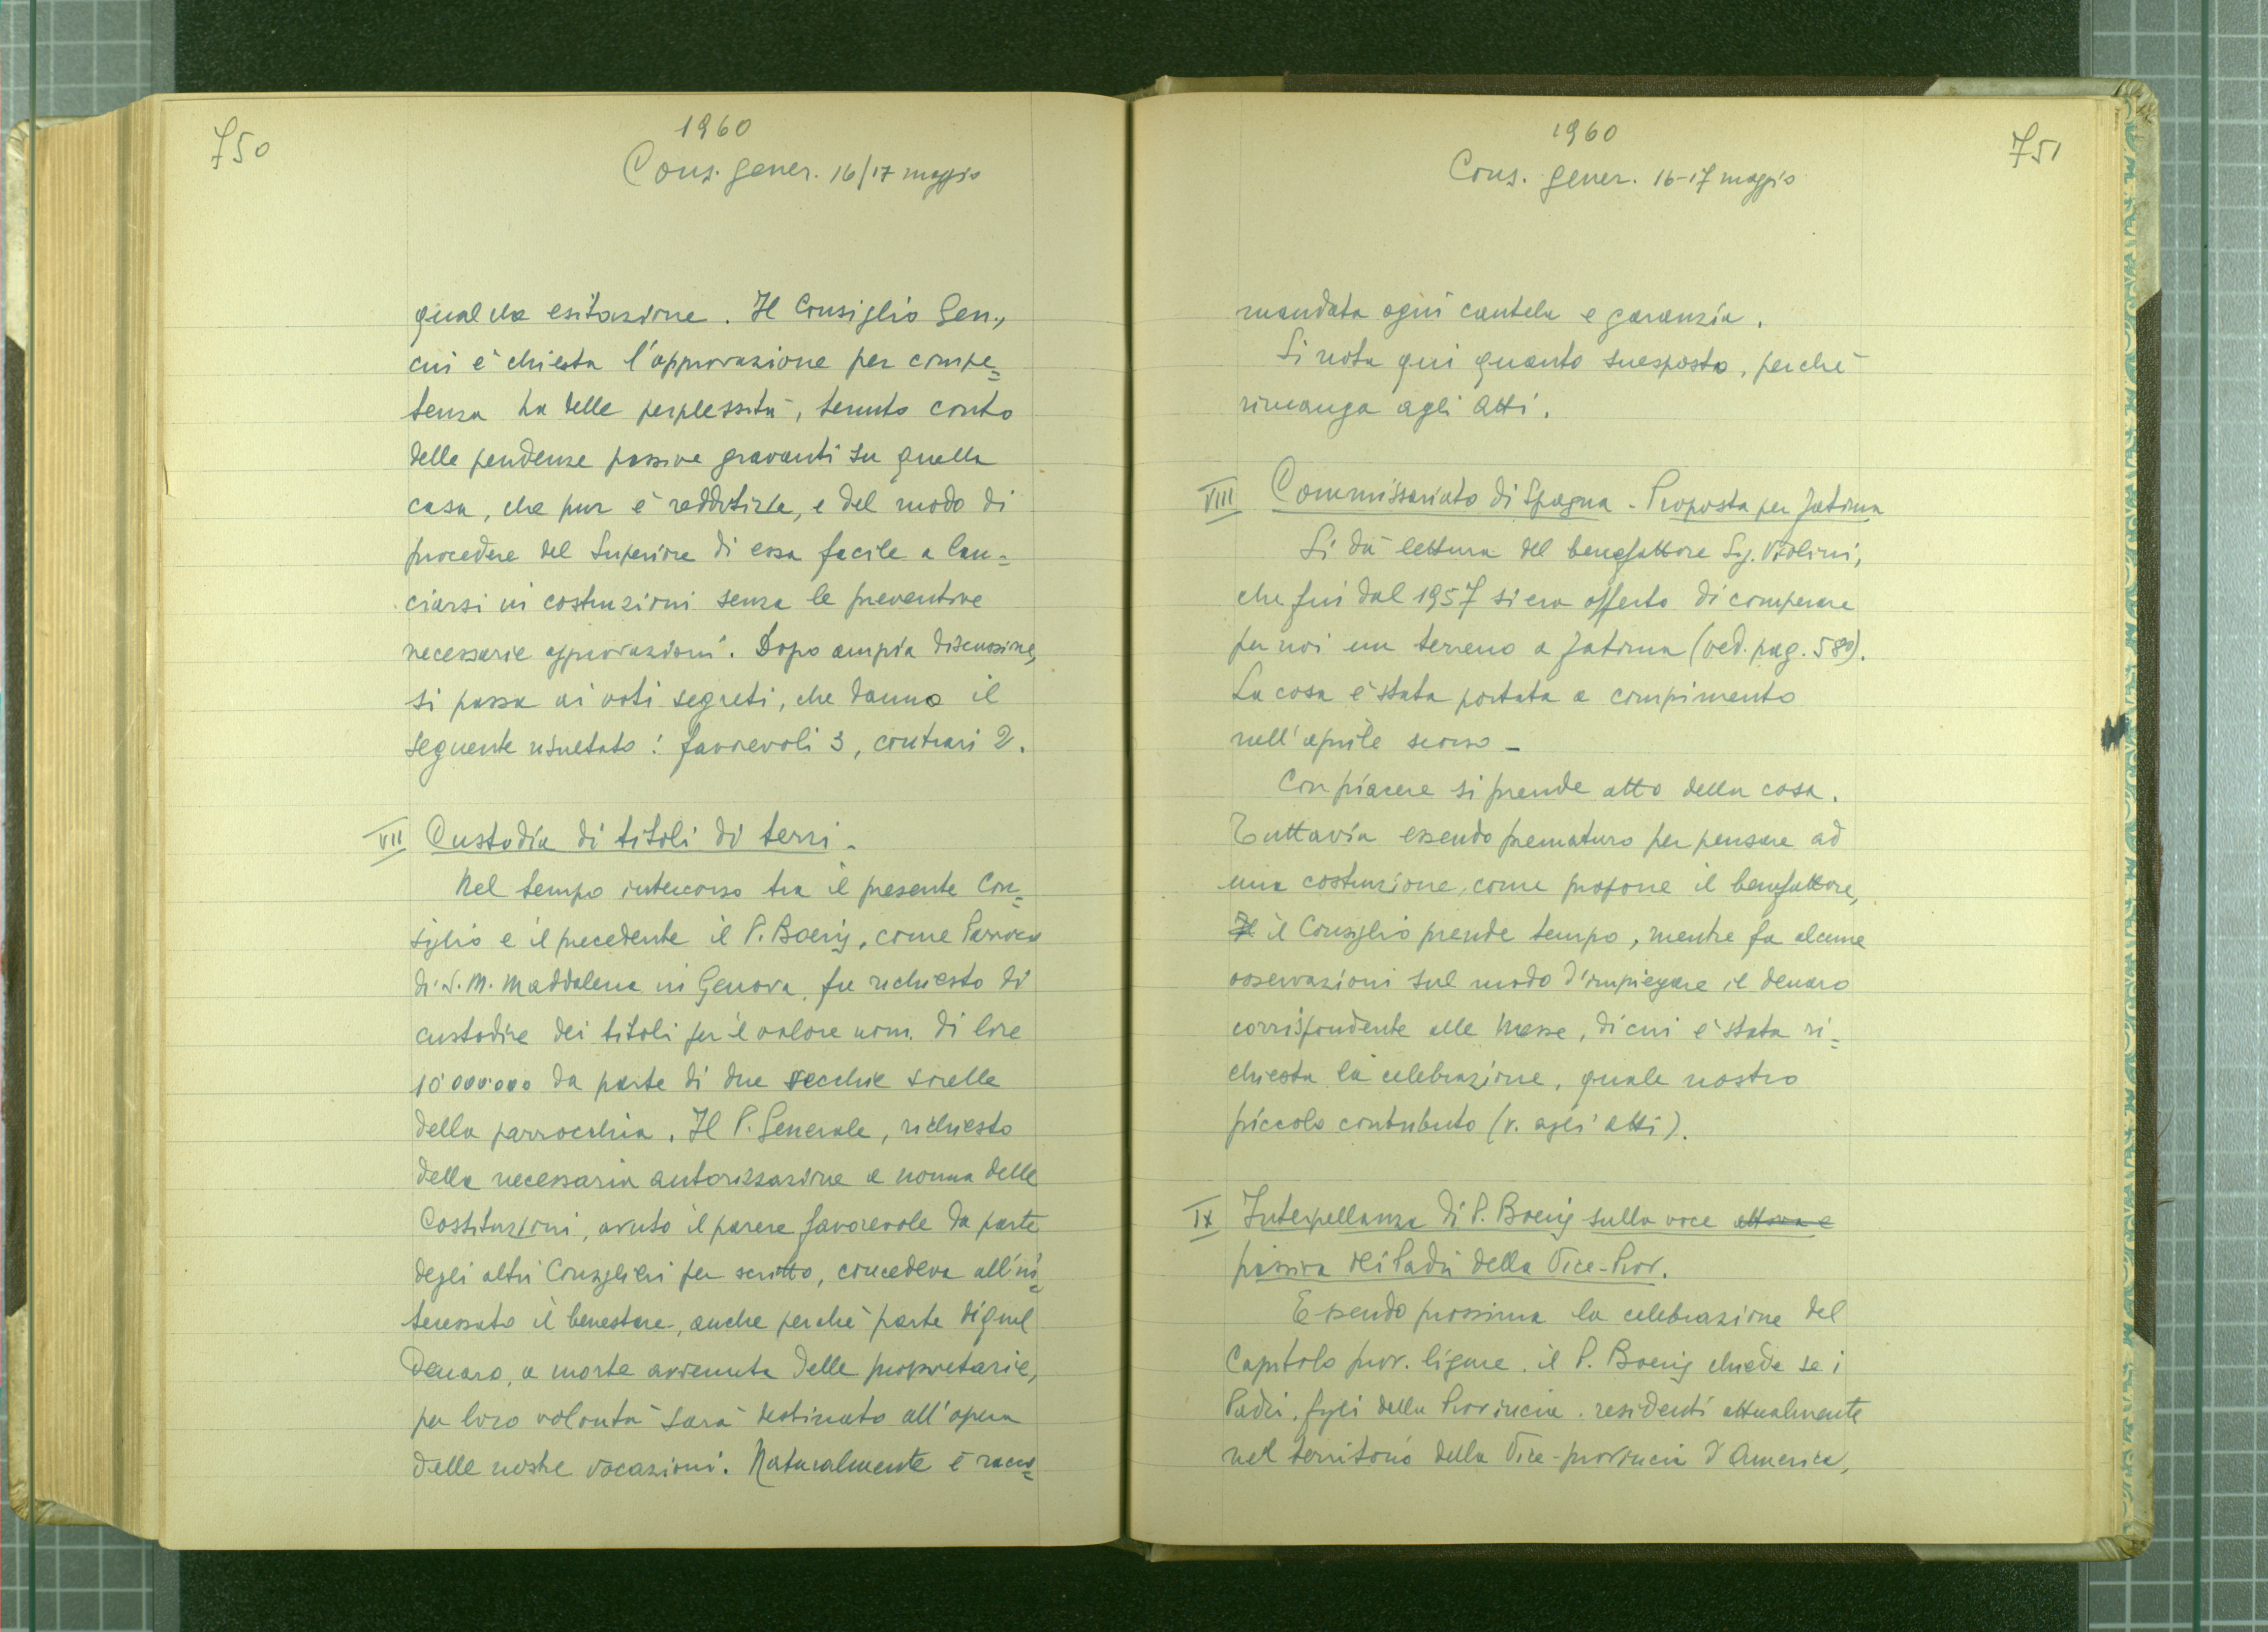 750
1960
Cons. gener. 16/17 maggio
qualche esitazione. Il Consiglio Gen.,
cui è chiesta l'approvazione per compe=
tenza ha delle perplessità, tenuto conto
delle pendenze passive gravanti su quella
casa, che pur è redditizia, e del modo di
procedere del Superiore di essa facile a lan=
ciarsi in costruzioni senza le preventive
necessarie approvazioni. Dopo ampia discussione,
si passa ai voti segreti, che danno il
seguente risultato: favorevoli 3, contrari 2.
VII Custodia di titoli di terzi -
Nel tempo intercorso tra il presente Con=
siglio e il precedente il P. Boeris, come Parroco
di S. M. Maddalena in Genova, fu richiesto di
custodire dei titoli per il valore nom. di lire
10'000'000 da parte di due vecchie sorelle
della parrocchia. Il P. Generale, richiesto
della necessaria autorizzazione a norma delle
Costituzioni, avuto il parere favorevole da parte
degli altri Consiglieri per scritto, concedeva all'in=
teressato il benestare, anche perchè parte di quel
denaro, a morte avvenuta delle proprietarie,
per loro volontà sarà destinato all'opera
delle nostre vocazioni. Naturalmente è racco=
1960
Cons. gener. 16-17 maggio
751
mandata ogni cautela e garanzia.
Si nota qui quanto suesposto, perchè
rimanga agli Atti.
VIII Commissariato di Spagna - Proposta per Fatima
Si dà lettura del benefattore Sig. Violini,
che fin dal 1957 si era offerto di comperare
per noi un terreno a Fatima (ved. pag. 580).
La cosa è stata portata a compimento
nell'aprile scorso -
Con piacere si prende atto della cosa.
Tuttavia essendo prematuro per pensare ad
una costruzione, come propone il benefattore,
Il il Consiglio prende tempo, mentre fa alcune
osservazioni sul modo d'impiegare il denaro
corrispondente alle Messe, di cui è stata ri=
chiesta la celebrazione, quale nostro
piccolo contributo (v. agli atti).
IX Interpellanza di P. Boeris sulla voce attiva e
passiva dei Padri della Vice-Prov.
Essendo prossima la celebrazione del
Capitolo prov. ligure, il P. Boeris chiede se i
Padri, figli della Provincia, residenti attualmente
nel territorio della Vice-provincia d'America,